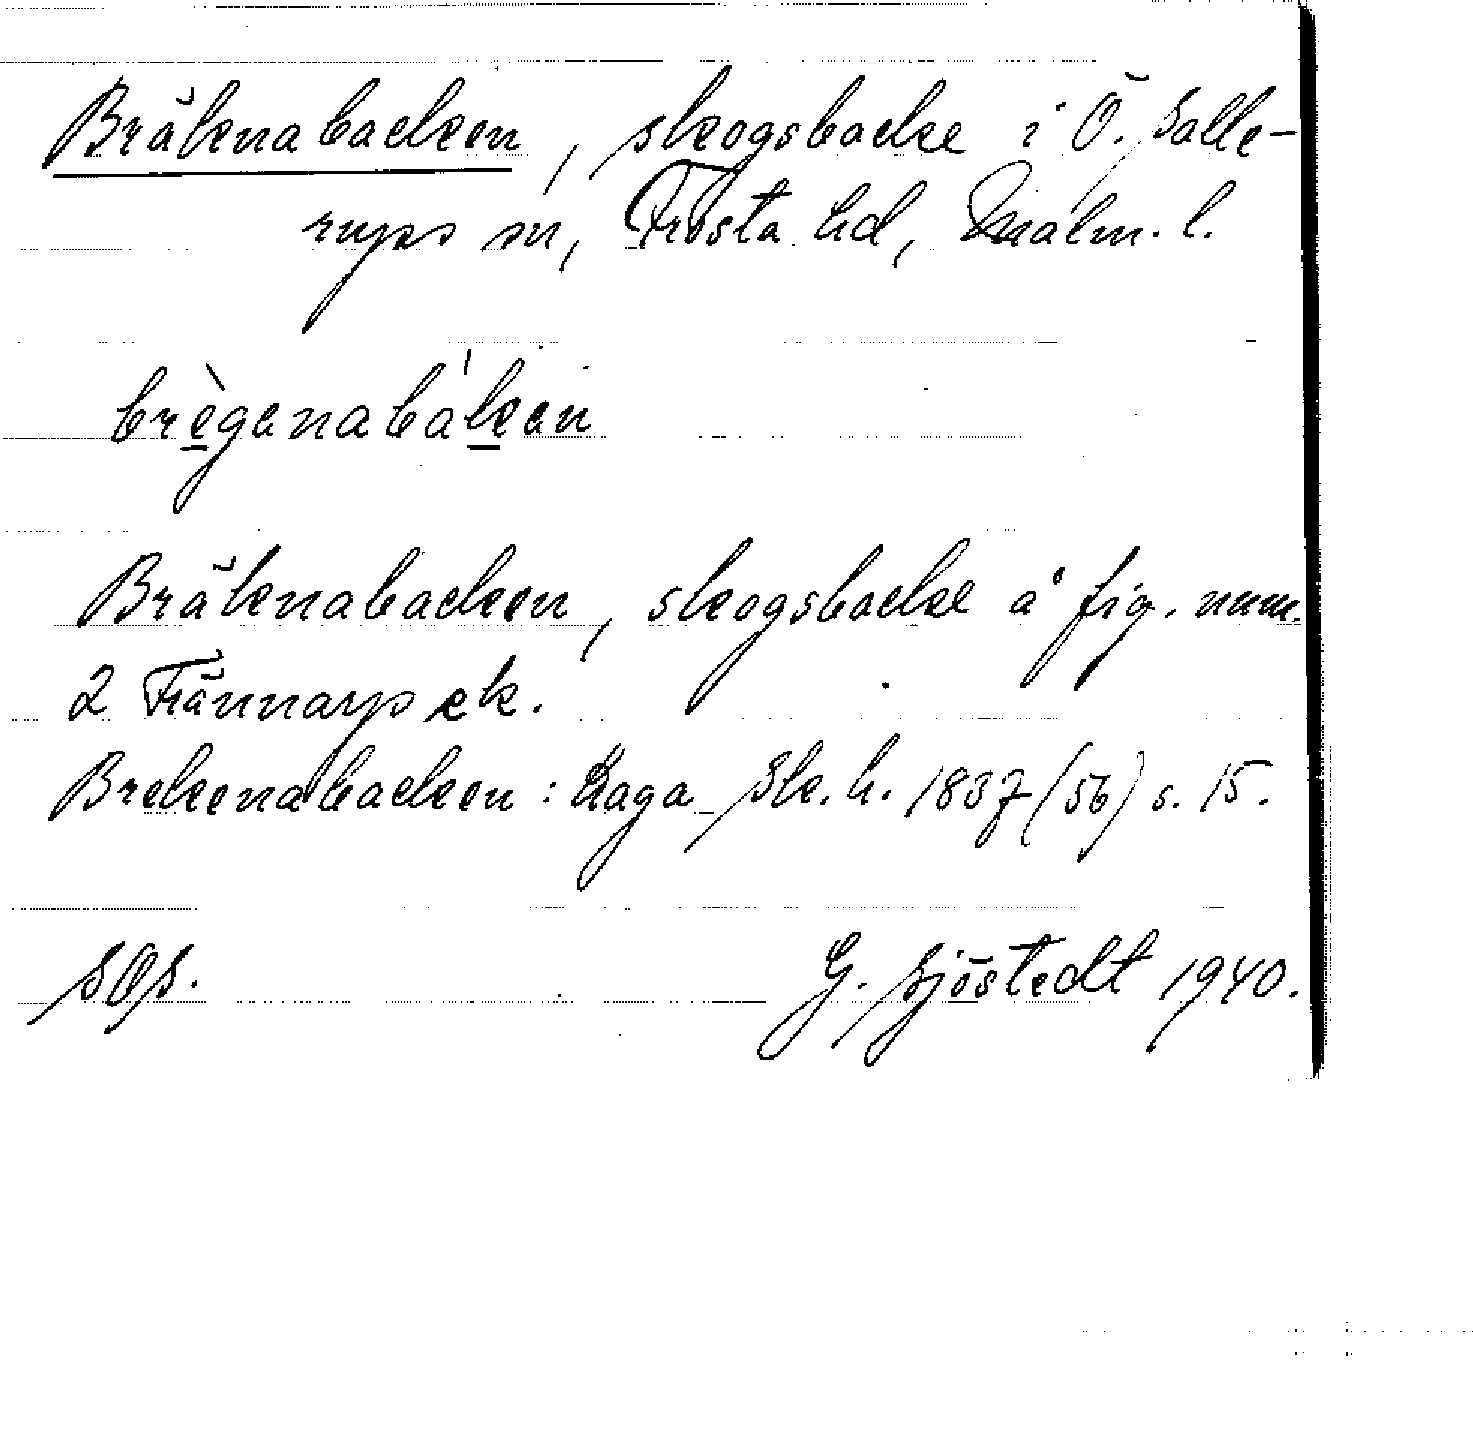 Bräknabacken, skogsbacke i Ö. Salle-
rups sn, Frosta hd, Malm. l.
brègenabàken
Bräknabacken, skogsbacke å fig. num.
2 Frännarp ek.
Brekenabacken: Laga Sk. h. 1837 (56) s. 15.
SOs.
G. Sjöstedt 1940.